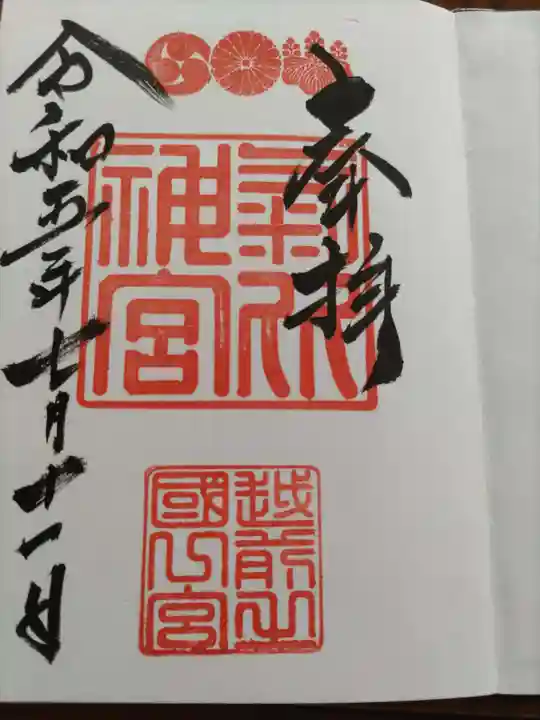 奉拝
氣比
神宮
越前
國
宮
令和五年七月十一日